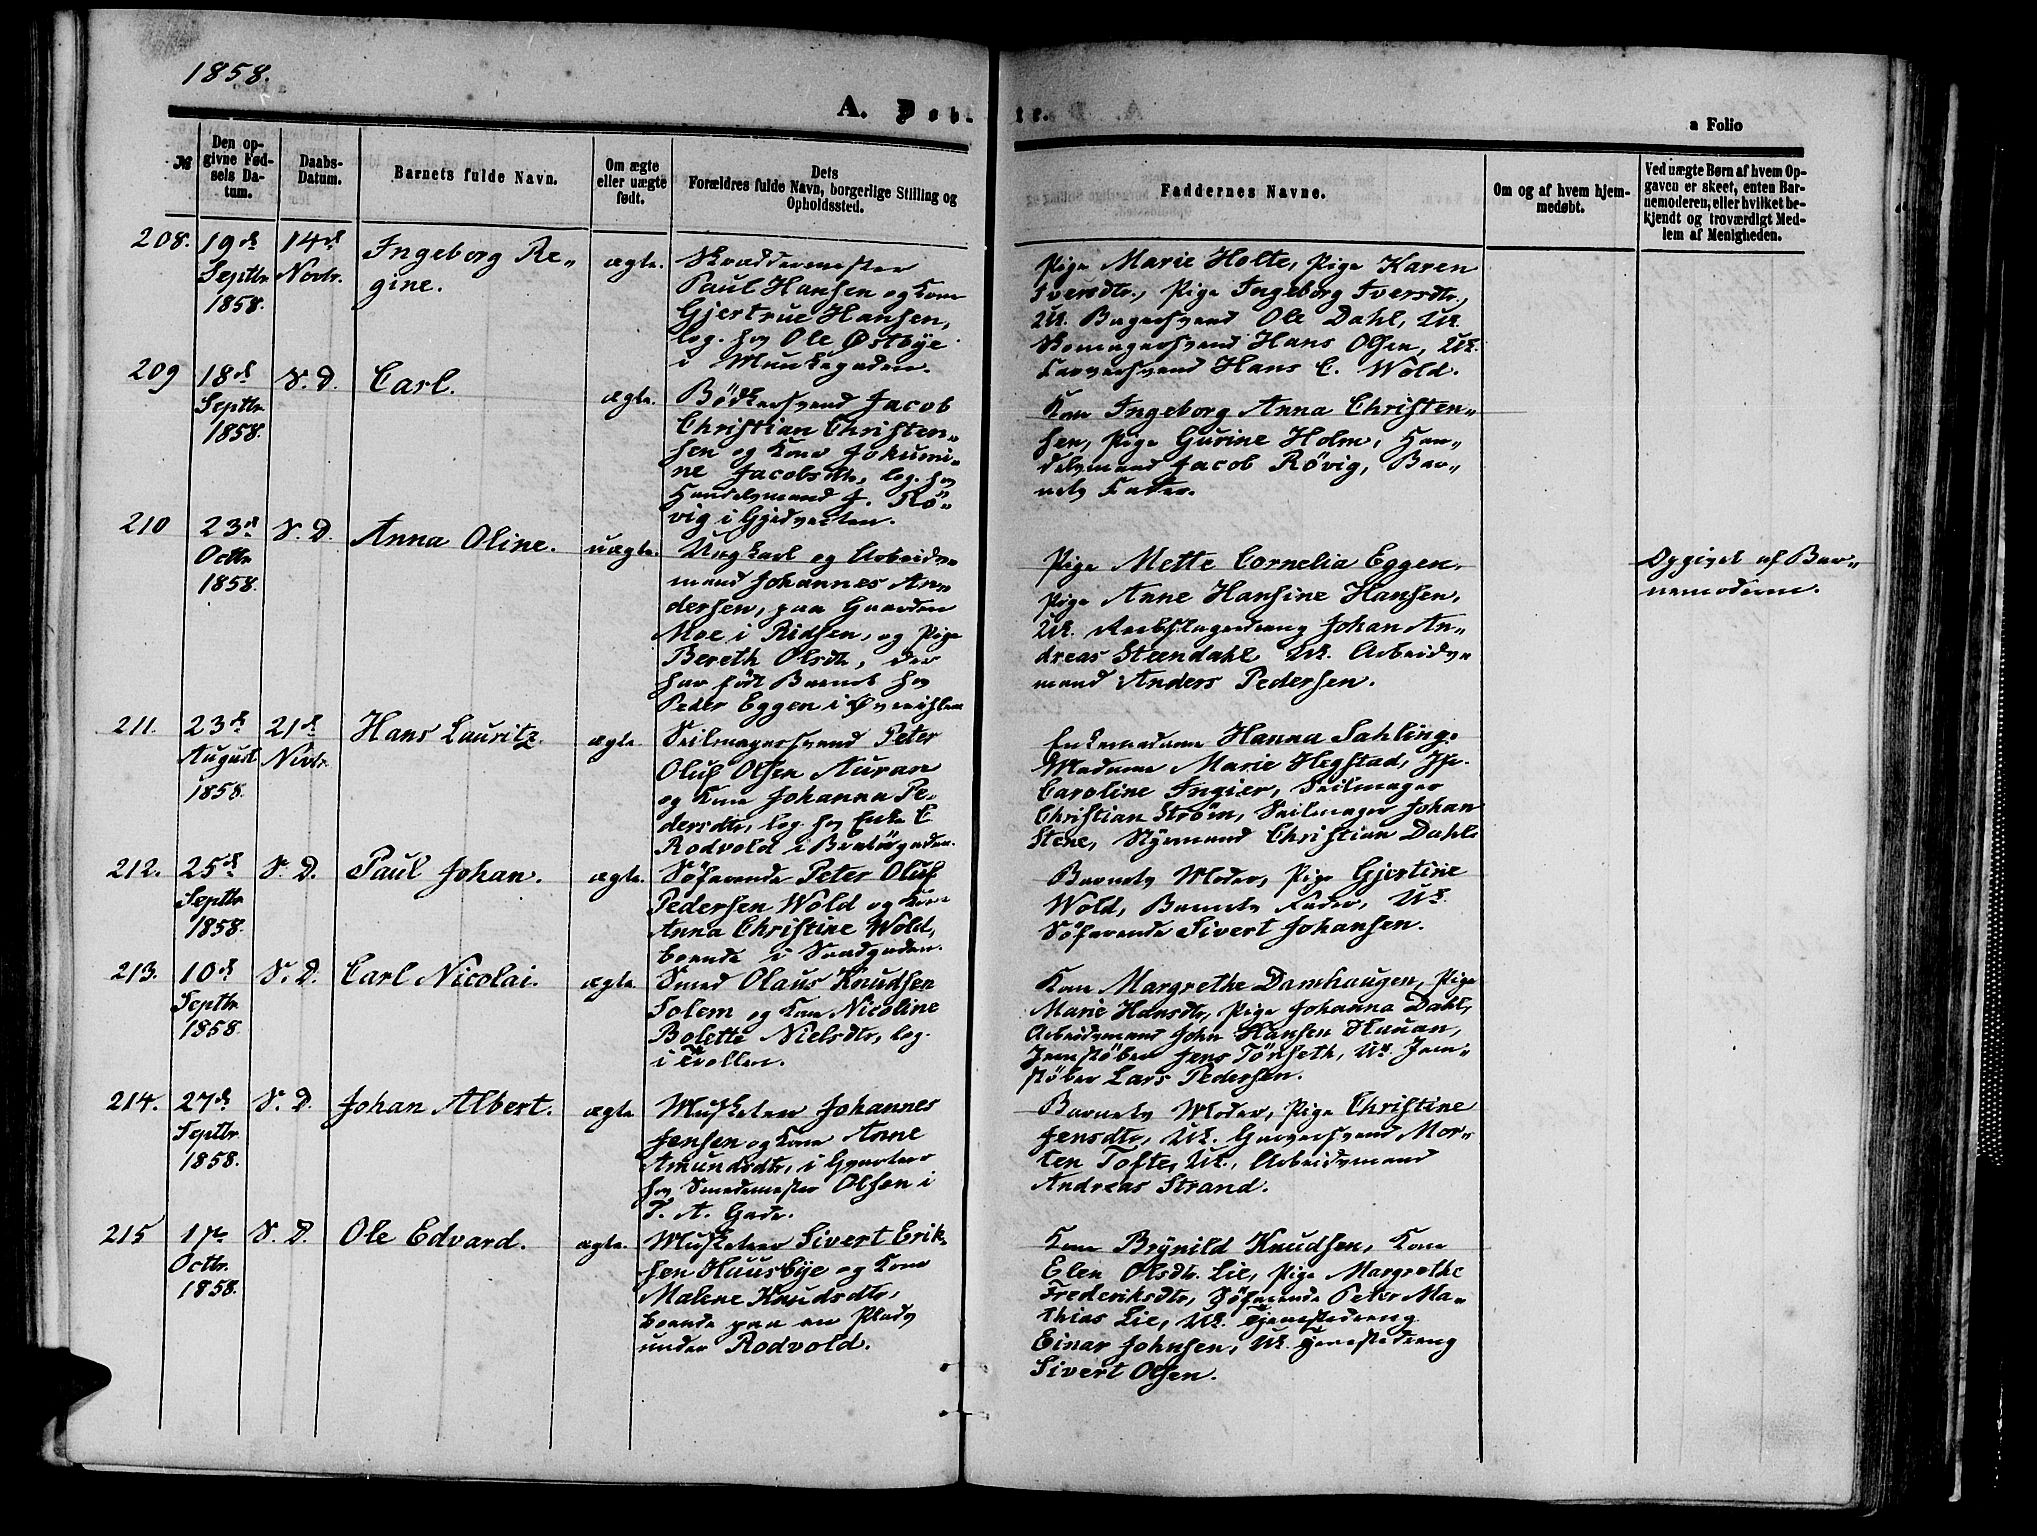 1858.
A. Døb-
te.
a Folio
№
Den op-
givne Fød-
sels Da-
tum.
Daabs-
Datum.
Barnets fulde Navn.
Om ægte
eller uægte
født.
Dets
Forældres fulde Navn, borgerlige Stilling og
Opholdssted.
Faddernes Navne.
Om og af hvem hjem-
medøbt.
Ved uægte Børn af hvem Op-
gaven er skeet, enten Bar-
nemoderen, eller hvilket be-
kjendt og troværdigt Med-
lem af Menigheden.
208.
19d
Septbr
1858.
14d
Novbr.
Ingeborg Re-
gine.
ægte.
Skræddermester
Paul Hansen og Kone
Gjertrue Hansen,
log. hos Ole Østbye
i Munkegaden.
Pige Marie Holte, Pige Karen
Iversdtr., Pige Ingeborg Iversdtr.,
Uk. Bagersvend Ole Dahl, Uk
Skomagersvend Hans Olsen, Uk.
Farversvend Hans C. Wold.
209
18d
Septbr
1858.
S. D.
Carl.
ægte.
Bödkersvend Jacob
Christian Christen-
sen og Kone Jokumi-
ne Jacobsdtr, log. hos
Handelsmand J. Rö-
vig i Gjedvesten.
Kone Ingeborg Anna Christen-
sen, Pige Gurine Holm, Han-
delsmand Jacob Rövig, Bar-
nets Fader.
210
23d
Octbr
1858.
S. D.
Anna Oline.
uægte.
Ungkarl og Arbeids-
mand Johannes An-
dersen, paa Gaarden
Moe i Ridsen, og Pige
Bereth Olsdtr, der
har födt Barnet hos
Peder Eggen i Øverislen
Pige Mette Cornelia Eggen.
Pige Anne Hansine Hansen,
Uk. Reebslagerdreng Johan An-
dreas Steendahl Uk. Arbeids-
mand Anders Pedersen.
Opgivet af Bar-
nemoderen.
211.
23d
August
1858.
21d
Novbr.
Hans Lauritz.
ægte
Seilmagersvend Peter
Oluf Olsen Auran
og Kone Johanna Pe-
dersdtr, log. hos Enke E
Rodvold i Bratörgaden.
Enkemadame Hanna Sahling.
Madame Marie Hegstad, Jfr.
Caroline Ingier, Seilmager
Christian Ström, Seilmager Johan
Stene, Styrmand Christian Dahl
212.
25d
Septbr
1858.
S. D.
Paul Johan.
ægte.
Söfarende Peter Oluf
Pedersen Wold og Kone
Anna Christine Wold,
boende i Sandgaden.
Barnets Moder, Pige Gjertine
Wold, Barnets Fader, Uk.
Söfarende Sivert Johansen.
213.
10d
Septbr
1858.
S. D.
Carl Nicolai.
ægte
Smed Olaus Knudsen
Solem og Kone Nicoline
Bolette Nielsdtr, log.
i Trollen.
Kone Margrethe Damhaugen, Pige
Marie Hansdtr, Pige Johanna Dahl,
Arbeidsmand John Hansen Hauan,
Jernstöber Jens Tönseth, Uk. Jern-
stöber Lars Pedersen.
214.
27d
Septbr.
1858.
S. D.
Johan Albert.
ægte
Musketeer Johannes
Jensen og Kone Anne
Amundsdtr, i Qvarteer
hos Smedemester Olsen i
T. A. Gade.
Barnets Moder, Pige Christine
Jensdtr, Uk. Garversvend Mor-
ten Tofte, Uk., Arbeidsmand
Andreas Strand.
215
1ste
Octbr.
1858.
S. D.
Ole Edvard.
ægte.
Musketeer Sivert Erik-
sen Huusbye og Kone
Malene Knudsdtr,
boende paa en Plads
under Rodvold.
Kone Brynild Knudsen, Kone
Elen Olsdtr. Lie, Pige Margrethe
Frederiksdtr, Söfarende Peter Ma-
thias Lie, Uk. Tjenestedreng
Einar Johnsen, Uk. Tjenestedreng
Sivert Olsen.